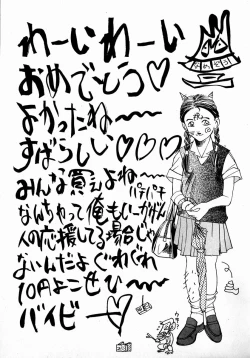 わーいわーい
おめでとう♡
よかったね〜〜
すばらしい♡♡♡
みんな買えよね〜〜
パチパチ
なんちゃって俺もいーかげん
人の応援してる場合じゃ
ないんだよぐわぐわ
10円よこせひ〜
バイビー♡